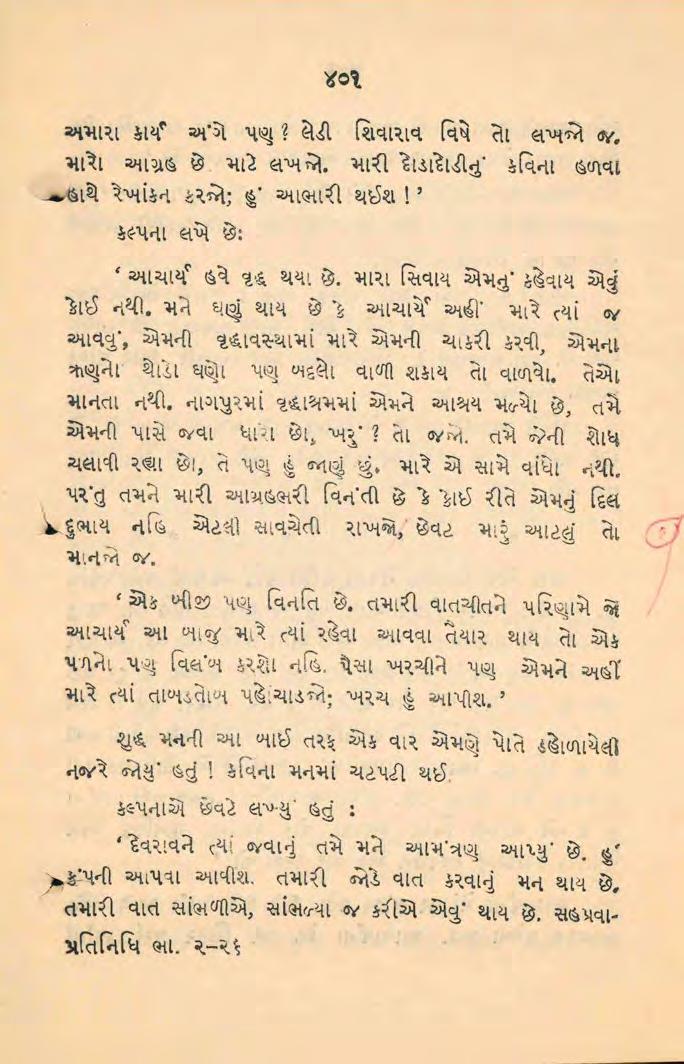 ૪૦૧
અમારા કાર્ય અંગે પણ ? લેડી શિવારાવ વિષે તો લખજો જ.
મારો આગ્રહ છે માટે લખજો. મારી દોડાદોડીનું કવિના હળવા
હાથે રેખાંકન કરજો; હું આભારી થઈશ ! ’
કલ્પના લખે છેઃ
‘ આચાર્ય હવે વૃદ્ધ થયા છે. મારા સિવાય એમનું કહેવાય એવું
કોઈ નથી. મને ઘણું થાય છે કે આચાર્યે અહીં મારે ત્યાં જ
આવવું, એમની વૃદ્ધાવસ્થામાં મારે એમની ચાકરી કરવી, એમના
ઋણનો થોડો ઘણો પણ બદલો વાળી શકાય તો વાળવો. તેઓ
માનતા નથી. નાગપુરમાં વૃદ્ધાશ્રમમાં એમને આશ્રય મળ્યો છે, તમે
એમની પાસે જવા ધારો છો, ખરું ? તો જજો. તમે જેની શોધ
ચલાવી રહ્યા છો, તે પણ હું જાણું છું. મારે એ સામે વાંધો નથી.
પરંતુ તમને મારી આગ્રહભરી વિનંતી છે કે કોઈ રીતે એમનું દિલ
દુભાય નહિ એટલી સાવચેતી રાખજો, છેવટ મારું આટલું તો
માનજો જ.
‘ એક બીજી પણ વિનતિ છે. તમારી વાતચીતને પરિણામે જો
આચાર્ય આ બાજુ મારે ત્યાં રહેવા આવવા તૈયાર થાય તો એક
પળનો પણ વિલંબ કરશો નહિ. પૈસા ખરચીને પણ એમને અહીં
મારે ત્યાં તાબડતોબ પહોંચાડજો; ખરચ હું આપીશ. ’
શુદ્ધ મનની આ બાઈ તરફ એક વાર એમણે પોતે ડહોળાયેલી
નજરે જોયું હતું ! કવિના મનમાં ચટપટી થઈ.
કલ્પનાએ છેવટે લખ્યું હતું :
‘ દેવરાવને ત્યાં જવાનું તમે મને આમંત્રણ આપ્યું છે. હું
કંપની આપવા આવીશ. તમારી જોડે વાત કરવાનું મન થાય છે.
તમારી વાત સાંભળીએ, સાંભળ્યા જ કરીએ એવું થાય છે. સહપ્રવા-
પ્રતિનિધિ ભા. ૨–૨૬